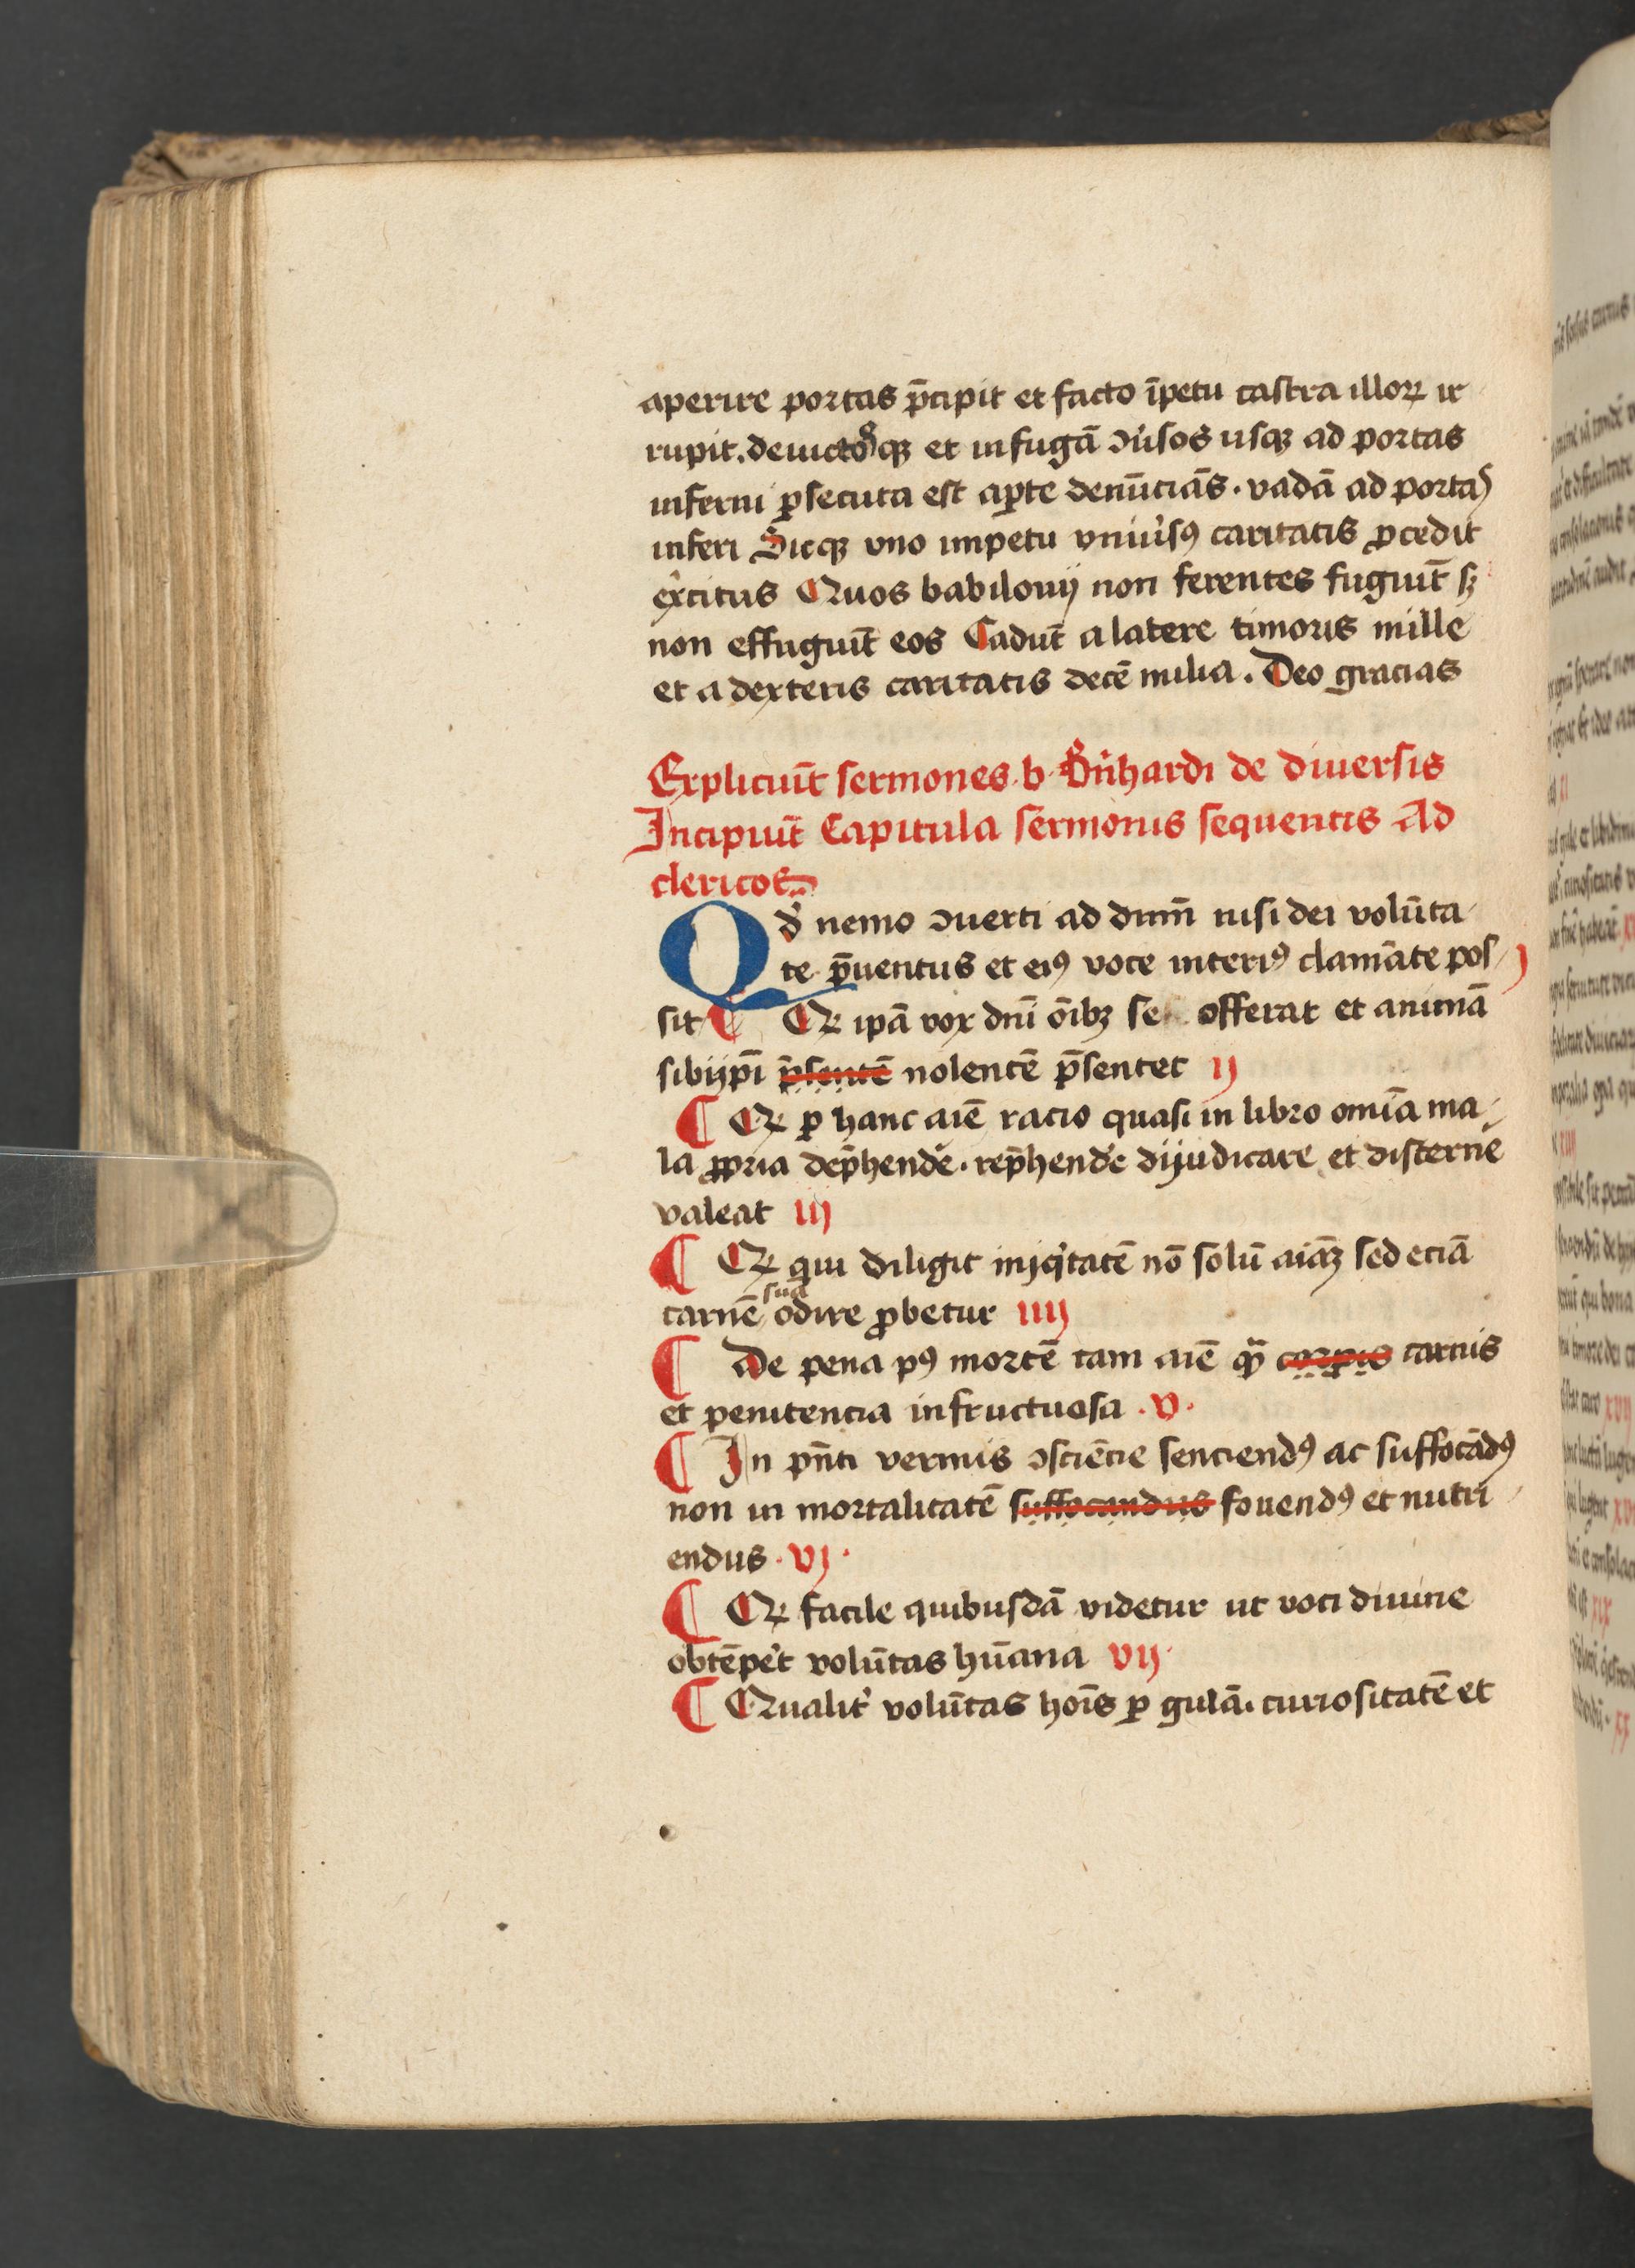 aperire portas p̄cipit et facto īpetu castra illoꝝ ir
rupit. deuictosqꝫ et in fugā ꝯu͛sos usqꝫ ad portas
inferni ꝑsecuta est aꝑte denūciās · vadā ad portas
inferi Sicqꝫ vno impetu vniu͛sꝰ caritatis ꝓcedit
ex͛citus Quos babilonij non ferentes fugiūt sꝫ
non effugiūt eos Cadūt a latere timoris mille
et a dexteris caritatis decē milia . Deo gracias
Expliciūt sermones · b · Bn͛hardi de diuersis
Incipiūt Capitula sermonis sequentis Ad
clericos
Qd͛ nemo ꝯuerti ad dn̄m nisi dei volūta
te p̄uentus et eiꝰ voce interiꝰ clamāte pos j
sit ¶ Qꝝ ipā vox dn̄i ōibꝫ se offerat et animā
sibijpī p̄sentē nolentē p̄sentet ij
¶ Qꝝ ꝑ hanc aīe racio quasi in libro omīa ma
la ꝓpria dep̄hende͛ · rep̄hende͛ dijudicare et discerne͛
valeat iij
¶ Qꝝ qui diligit iniqͥtatē nō solū aīaꝫ sed eciā
carnē sua odire ꝓbetur iiij
¶ De pena pꝰ mortē tam aīe qᷓ corpis carnis
et penitencia infructuosa · v ·
¶ In pn̄ti vermis ꝯsciēcie senciendꝰ ac suffocādꝰ
non in mortalitatē suffocandus fouendꝰ et nutri
endus · vj ·
¶ Qꝝ facile quibusdā videtur ut voci diuine
obtēpe͛t volūtas hūana vij ·
¶ Qualit͛ volūtas hoīs ꝑ gulā · curiositatē et